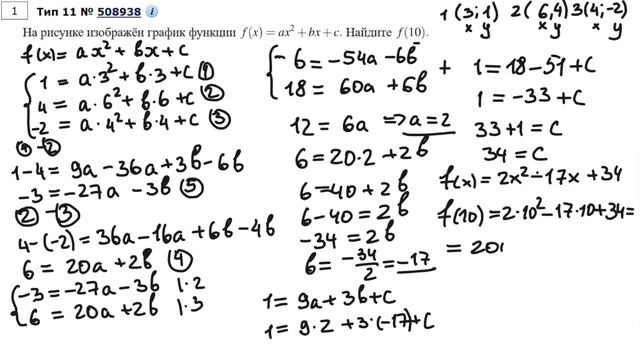 1 Тип 11 № 508938 i
На рисунке изображён график функции f(x) = ax² + bx + c. Найдите f(10).
1 (3; 1) 2 (6, 4) 3 (4; -2)
x y x y x y
f(x) = ax² + bx + c
1 = a·3² + b·3 + c ①
4 = a·6² + b·6 + c ②
-2 = a·4² + b·4 + c ③
① - ②
1-4 = 9a - 36a + 3b - 6b
-3 = -27a - 3b ⑤
② - ③
4-(-2) = 36a - 16a + 6b - 4b
6 = 20a + 2b ④
-3 = -27a - 3b |·2
6 = 20a + 2b |·3
-6 = -54a - 6b
+
18 = 60a + 6b
12 = 6a => a = 2
6 = 20·2 + 2b
6 = 40 + 2b
6 - 40 = 2b
-34 = 2b
b = -34/2 = -17
1 = 9a + 3b + c
1 = 9·2 + 3·(-17) + c
1 = 18 - 51 + c
1 = -33 + c
33 + 1 = c
34 = c
f(x) = 2x² - 17x + 34
f(10) = 2·10² - 17·10 + 34 =
= 200